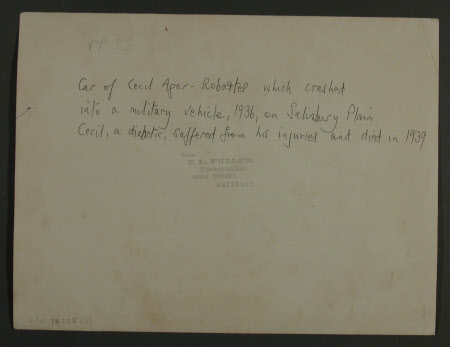 Car of Cecil Agar-Robartes which crashed
into a military vehicle, 1936, on Salisbury Plain
Cecil, a diabetic, suffered from his injuries and died in 1939
From
T. L. FULLER,
Photographer,
HIGH STREET,
AMESBURY.